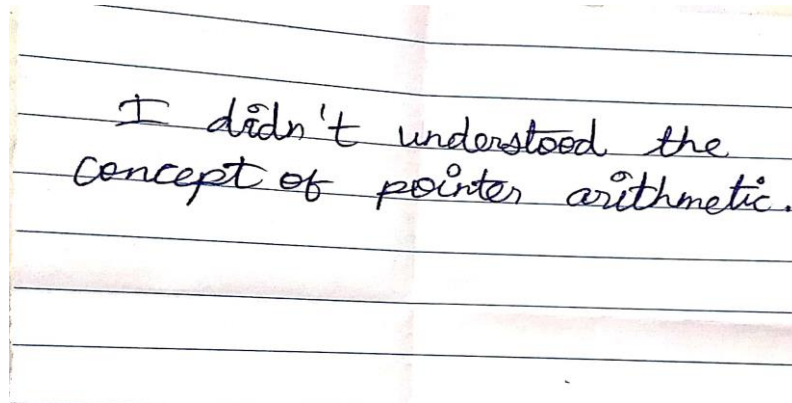 I didn't understood the
concept of pointer arithmetic.